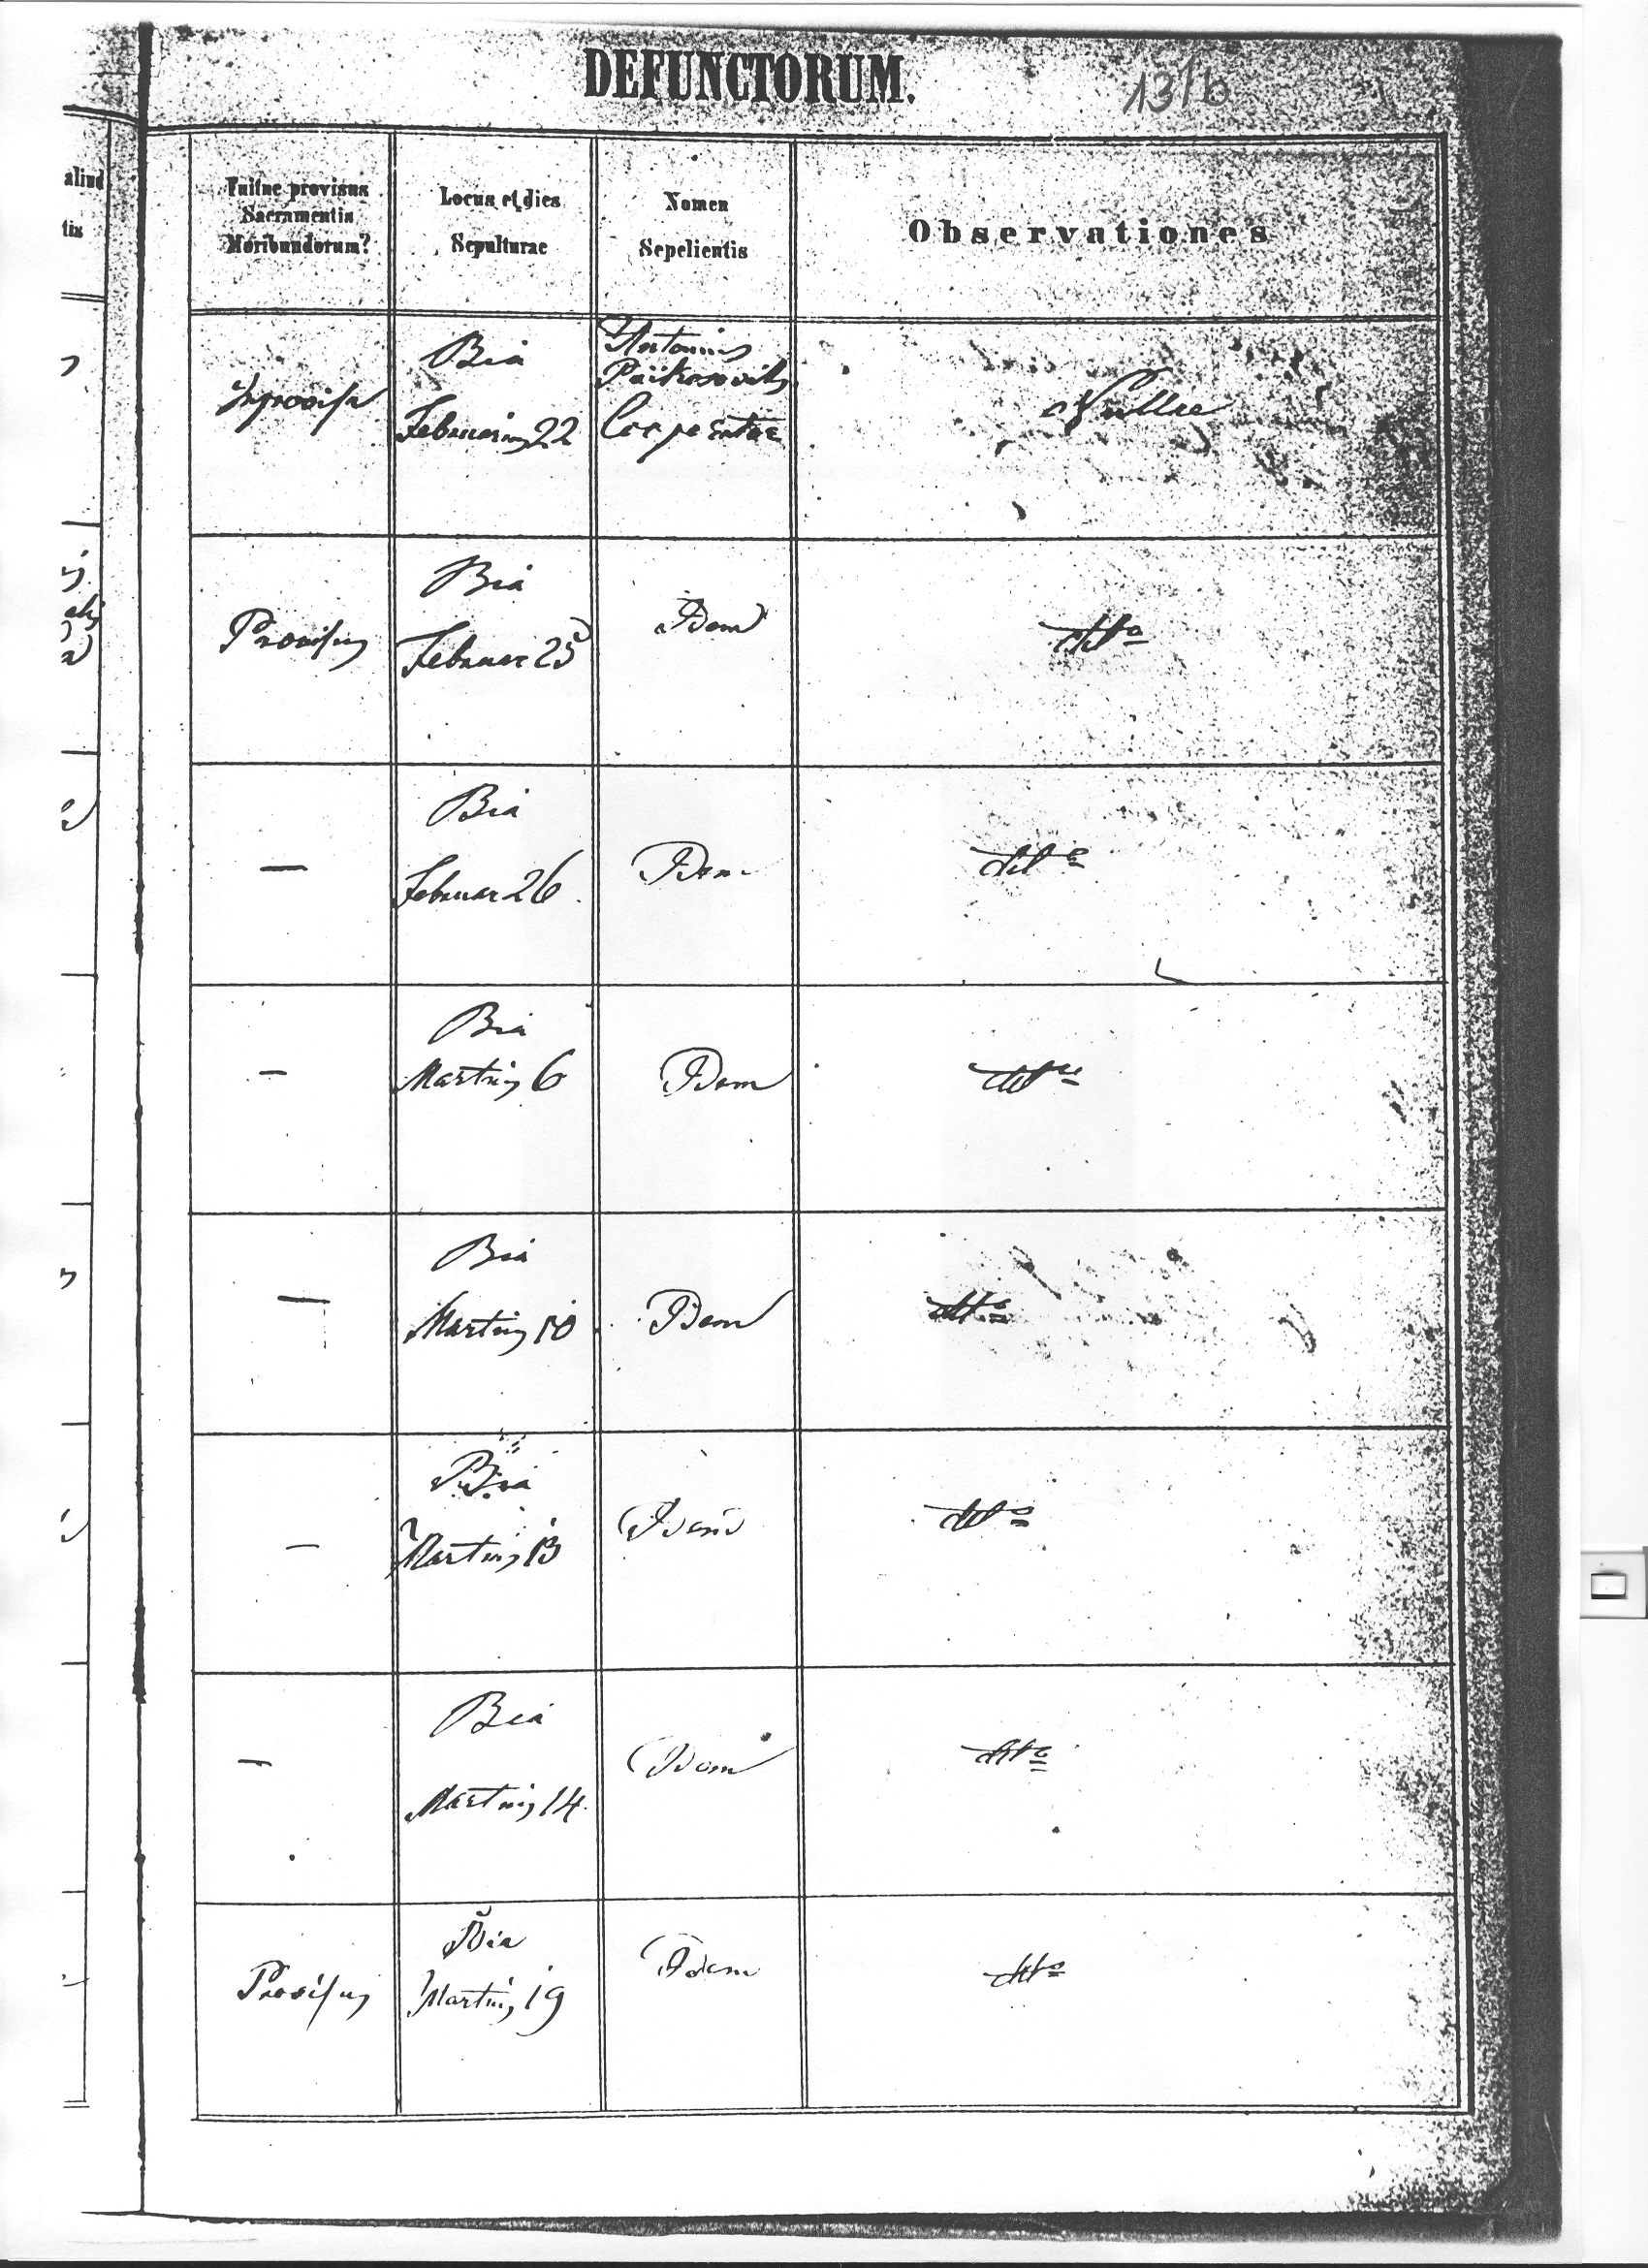 DEFUNCTORUM.
131b
aliud
tis
Fuitne provisus
Sacramentis
Moribundorum?
Locus et dies
Sepulturae
Nomen
Sepelientis
Observationes
Improvisa
Bia
Februarius 22
Antonius
Nullae
Provisus
Bia
Februar 25
Idem
dtto
—
Bia
Februar 26
Idem
dtto
—
Bia
Martius 6
Idem
dtto
—
Bia
Martius 10
Idem
dtto
—
Bia
Martius 13
Idem
dtto
—
Bia
Martius 14
Idem
dtto
Provisus
Bia
Martius 19
Idem
dtto